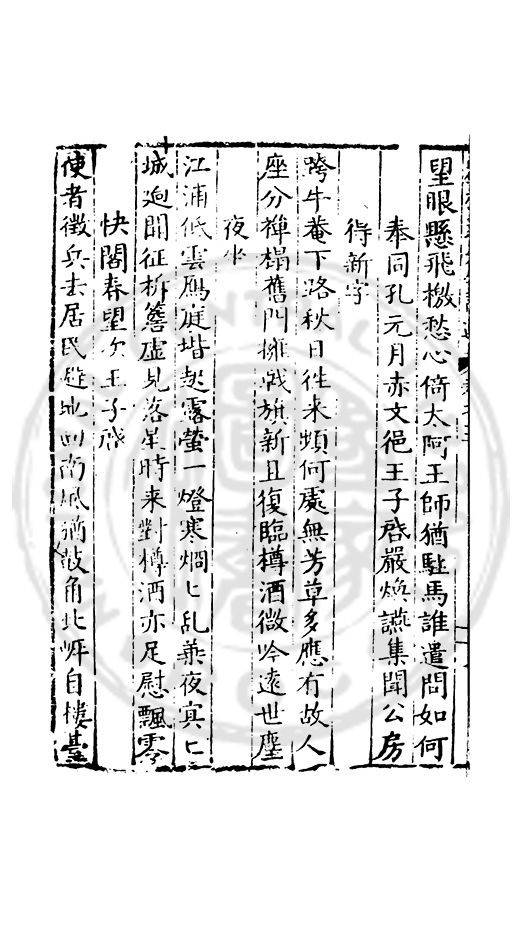 望眼懸飛檄愁心倚太阿王師猶駐馬誰遣問如何
奉同孔元月赤文邑王子啓嚴煥讌集聞公房
得新字
跨牛菴下路秋日往来頻何處無芳草多應有故人
座分禪榻舊門擁戟旗新且復臨樽酒微吟遠世塵
夜坐
江浦低雲鴈庭堦起露螢一燈寒焗匕乱葉夜寞匕
城迥聞征柝簷虚見落星時来對樽酒亦足慰飄零
快閣春望次王子啓
使者徵兵去居民避地回南風猶鼓角北岸自樓䑓